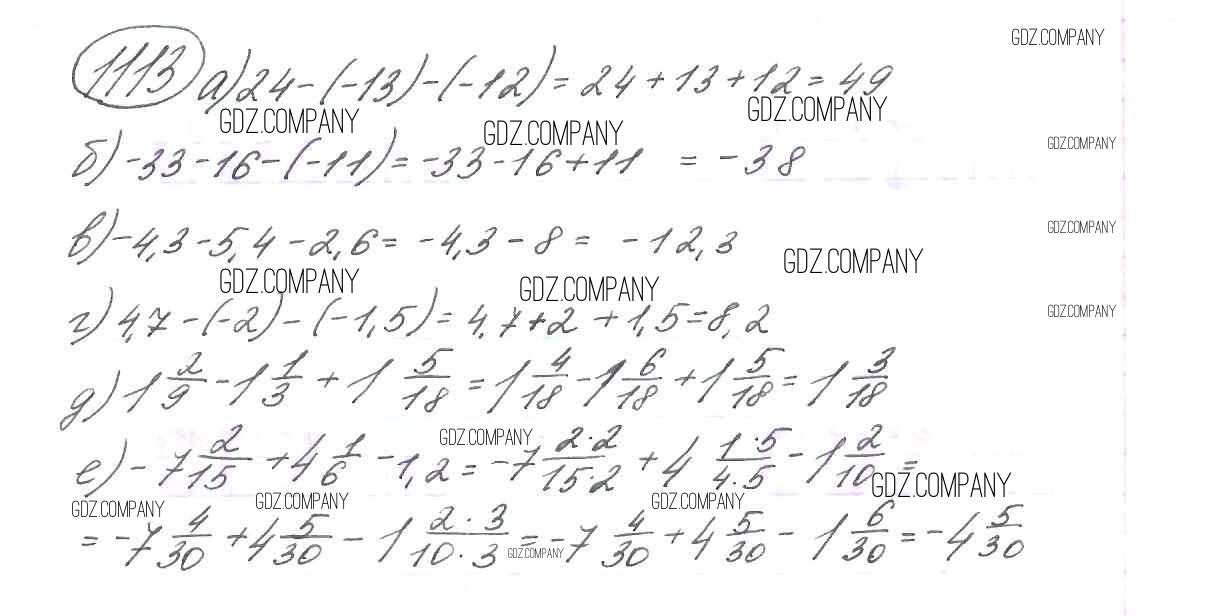 GDZ.COMPANY
1113 а) 24 - (-13) - (-12) = 24 + 13 + 12 = 49
GDZ.COMPANY GDZ.COMPANY GDZ.COMPANY GDZ.COMPANY
б) -33 - 16 - (-11) = -33 - 16 + 11 = -38
в) -4,3 - 5,4 - 2,6 = -4,3 - 8 = -12,3 GDZ.COMPANY
GDZ.COMPANY GDZ.COMPANY GDZ.COMPANY
г) 4,7 - (-2) - (-1,5) = 4,7 + 2 + 1,5 = 8,2 GDZ.COMPANY
д) 1 2/9 - 1 1/3 + 1 5/18 = 1 4/18 - 1 6/18 + 1 5/18 = 1 3/18
GDZ.COMPANY
е) -7 2/15 + 4 1/6 - 1,2 = -7 2·2/15·2 + 4 1·5/4·5 - 1 2/10 =
GDZ.COMPANY GDZ.COMPANY GDZ.COMPANY GDZ.COMPANY
= -7 4/30 + 4 5/30 - 1 2·3/10·3 = -7 4/30 + 4 5/30 - 1 6/30 = -4 5/30
GDZ.COMPANY